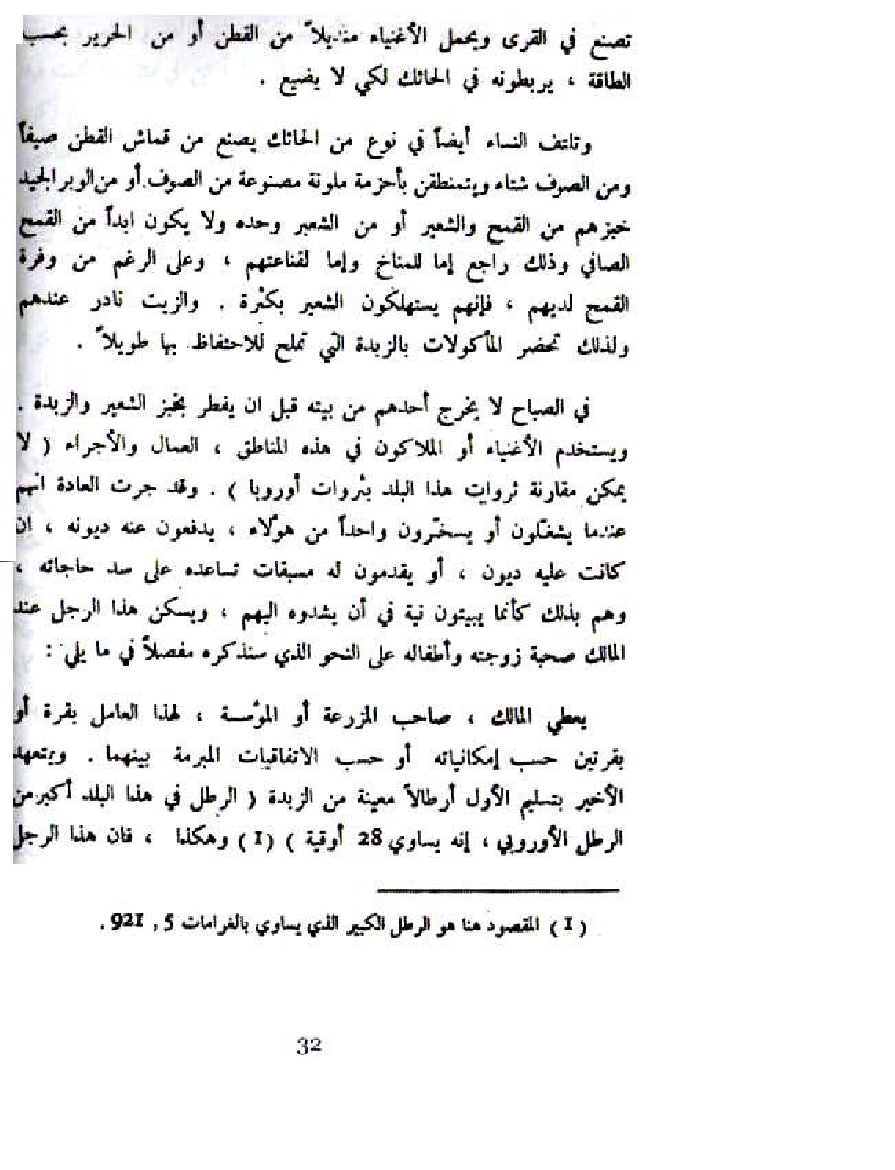 تصنع في القرى ويحمل الأغنياء منديلاً من القطن أو من الحرير بحسب
الطاقة ، يربطونه في الحائك لكي لا يضيع .
وتلتف النساء أيضاً في نوع من الحائك يصنع من قماش القطن صيفاً
ومن الصوف شتاء ويتمنطقن بأحزمة ملونة مصنوعة من الصوف أو من الوبر الجيد
خبزهم من القمح والشعير أو من الشعير وحده ولا يكون ابداً من القمح
الصافي وذلك راجع إما للمناخ وإما لقناعتهم ، وعلى الرغم من وفرة
القمح لديهم ، فإنهم يستهلكون الشعير بكثرة . والزيت نادر عندهم
ولذلك تحضر المأكولات بالزبدة التي تملح للاحتفاظ بها طويلاً .
في الصباح لا يخرج أحدهم من بيته قبل ان يفطر بخبز الشعير والزبدة .
ويستخدم الأغنياء أو الملاكون في هذه المناطق ، العمال والأجراء ( لا
يمكن مقارنة ثروات هذا البلد بثروات أوروبا ) . وقد جرت العادة انهم
عندما يشغلون أو يسخّرون واحداً من هؤلاء ، يدفعون عنه ديونه ، ان
كانت عليه ديون ، أو يقدمون له مسبقات تساعده على سد حاجاته ،
وهم بذلك كأنما يبيتون نية في أن يشدوه اليهم ، ويسكن هذا الرجل عند
المالك صحبة زوجته وأطفاله على النحو الذي سنذكره مفصلاً في ما يلي :
يعطي المالك ، صاحب المزرعة أو المؤسسة ، لهذا العامل بقرة أو
بقرتين حسب إمكانياته أو حسب الاتفاقيات المبرمة بينهما . ويتعهد
الأخير بتسليم الأول أرطالاً معينة من الزبدة ( الرطل في هذا البلد أكبر من
الرطل الأوروبي ، إنه يساوي 28 أوقية ) (1) وهكذا ، فان هذا الرجل
(1) المقصود هنا هو الرطل الكبير الذي يساوي بالغرامات 5 , 921 .
32